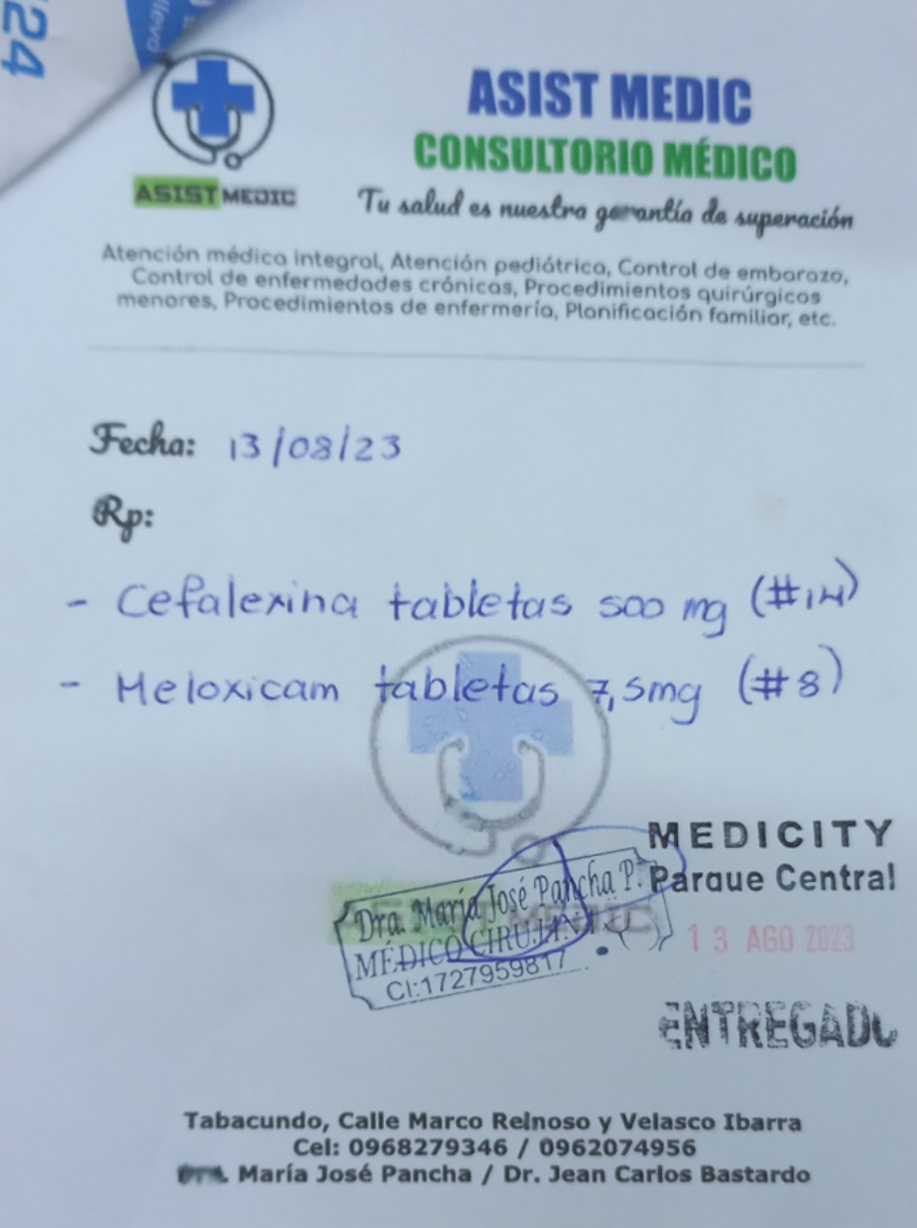 24
llevo
ASIST MEDIC
CONSULTORIO MÉDICO
ASIST MEDIC
Tu salud es nuestra garantía de superación
Atención médica integral, Atención pediátrica, Control de embarazo,
Control de enfermedades crónicas, Procedimientos quirúrgicos
menores, Procedimientos de enfermería, Planificación familiar, etc.
Fecha: 13/08/23
Rp:
- Cefalexina tabletas 500 mg (#14)
- Meloxicam tabletas 7,5mg (#8)
MEDICITY
Parque Central
13 AGO 2023
ENTREGADO
Dra. María José Pancha P.
MÉDICO CIRUJANO
CI:1727959817
ASIST MEDIC
Tabacundo, Calle Marco Reinoso y Velasco Ibarra
Cel: 0968279346 / 0962074956
Dra. María José Pancha / Dr. Jean Carlos Bastardo